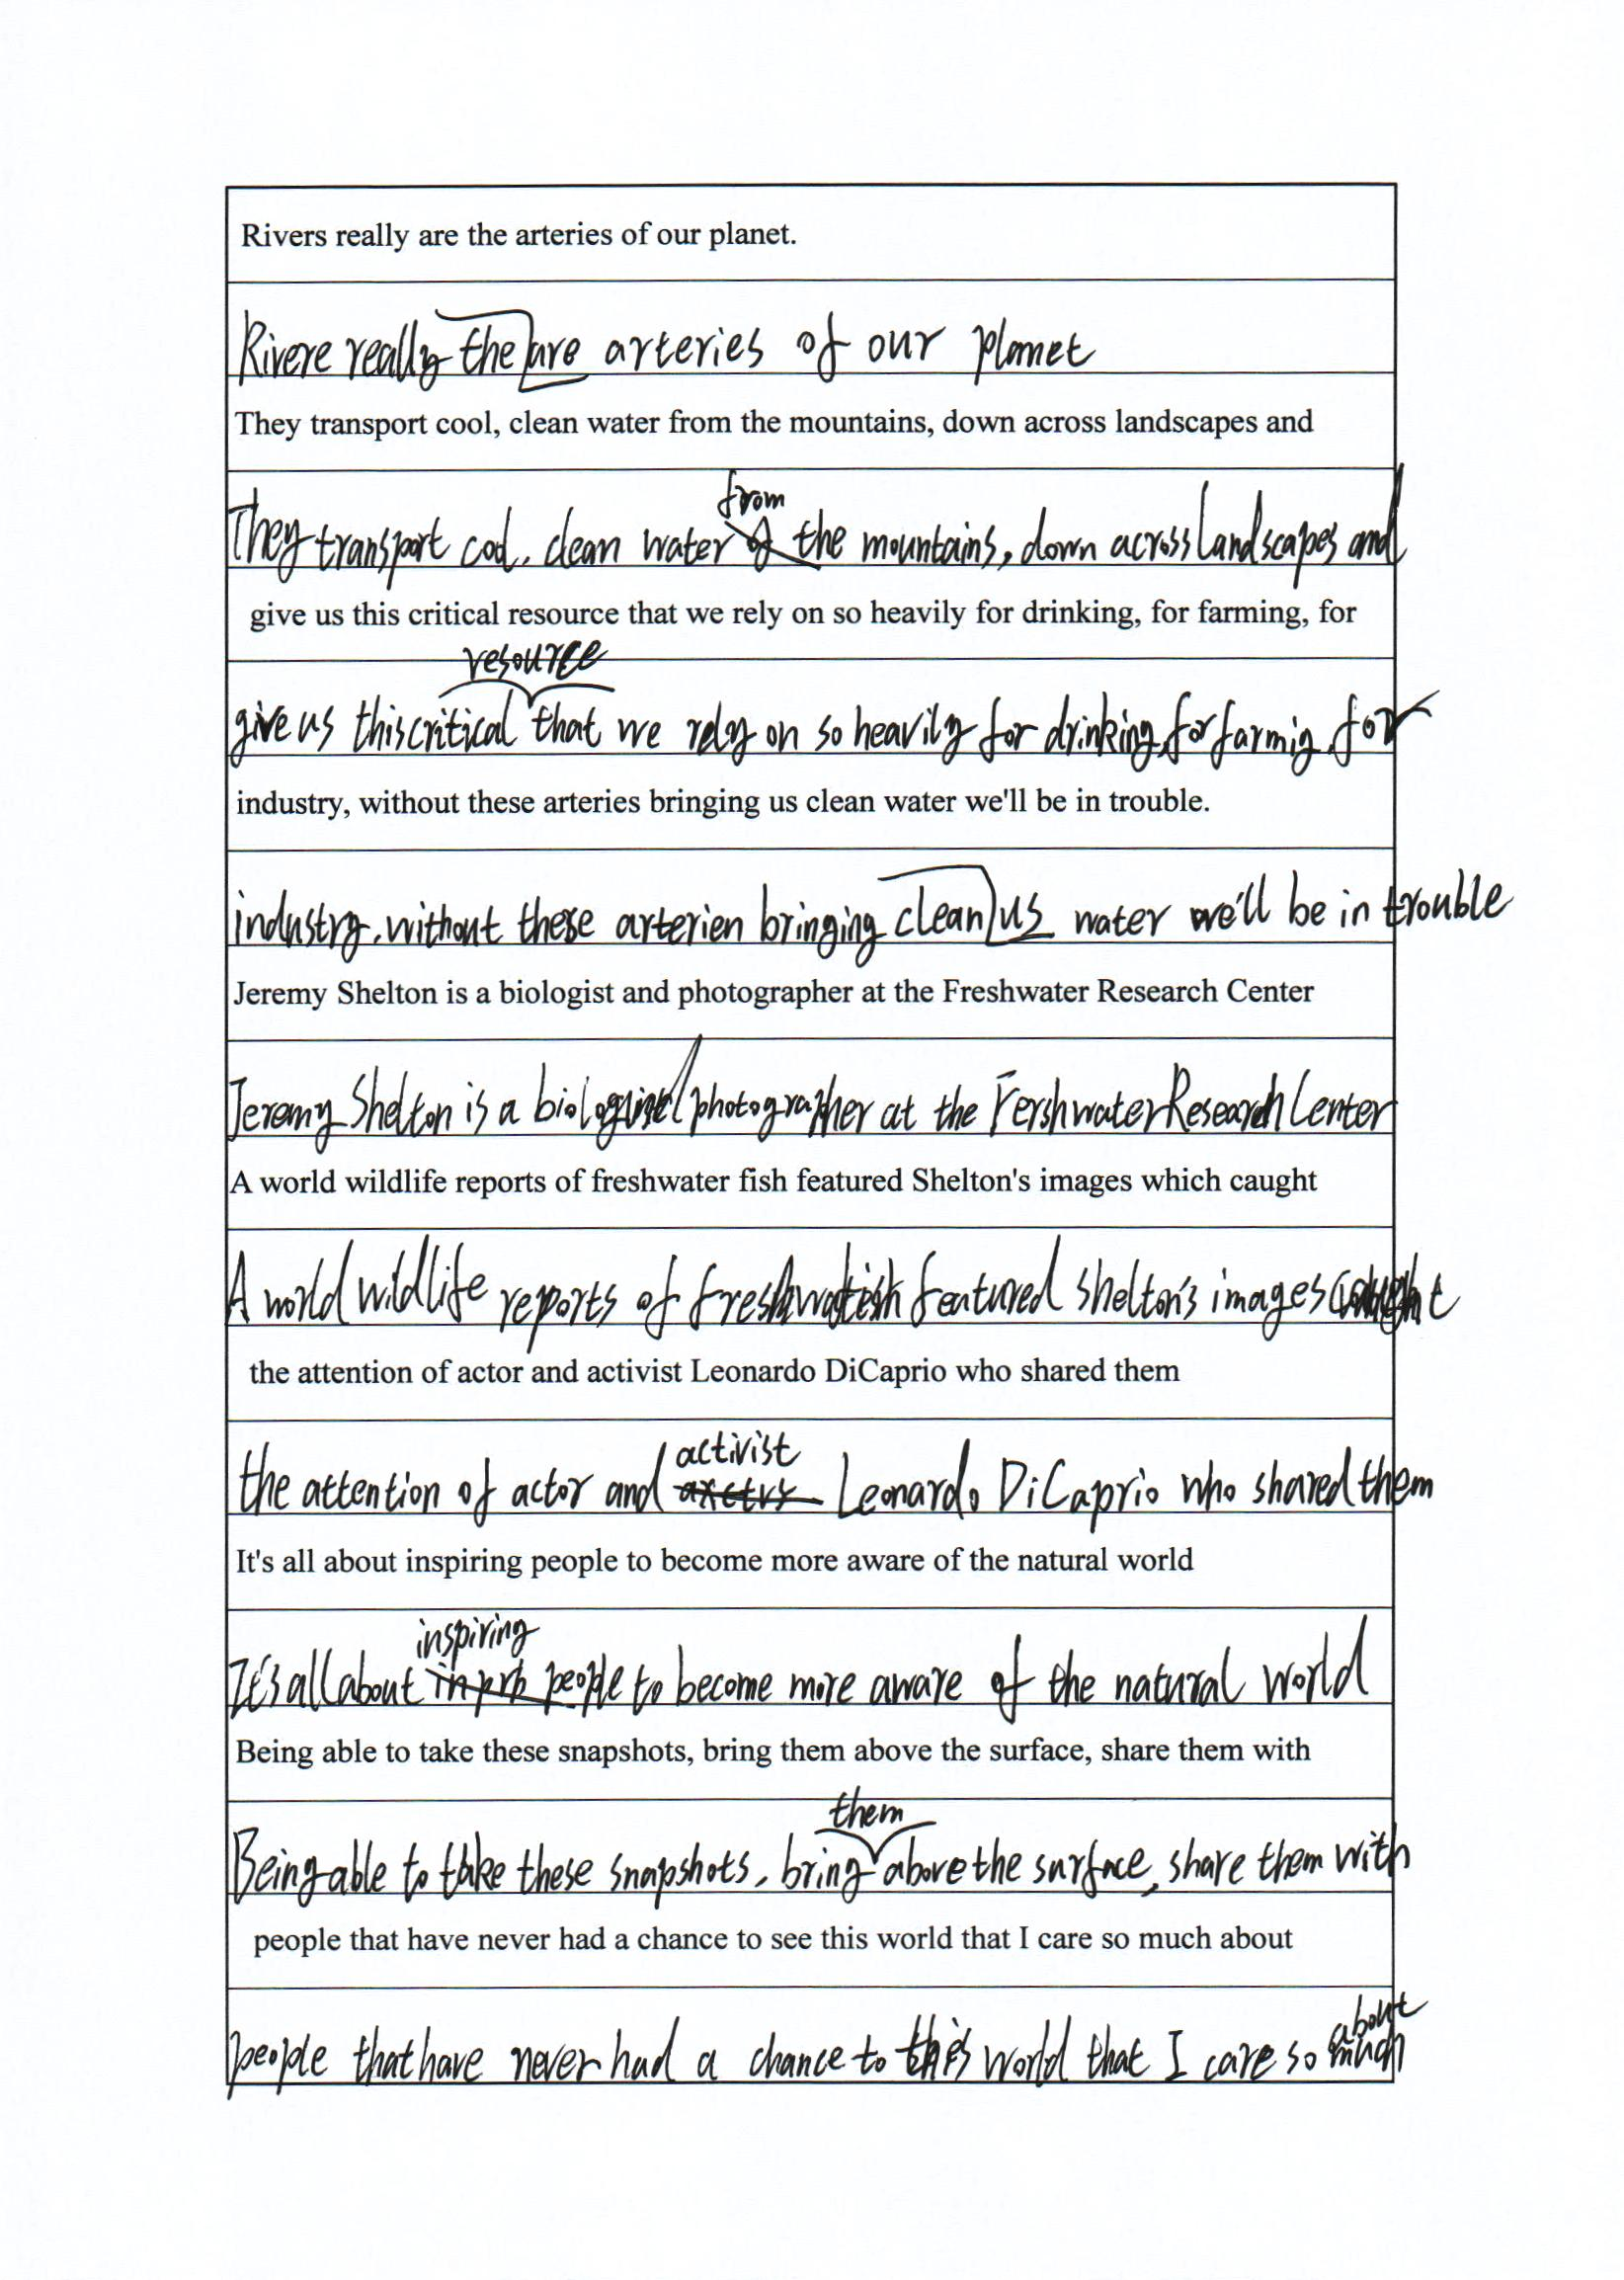 Rivers really are the arteries of our planet.
Rivere really are the arteries of our planet
They transport cool, clean water from the mountains, down across landscapes and
They transport cool, clean water from the mountains, down across landscapes and
give us this critical resource that we rely on so heavily for drinking, for farming, for
give us this critical resource that we rely on so heavily for drinking, for farmig, for
industry, without these arteries bringing us clean water we'll be in trouble.
industry, without these arterien bringing us clean water we'll be in trouble
Jeremy Shelton is a biologist and photographer at the Freshwater Research Center
Jeremy Shelton is a photographer at the Fershwater Research Center
A world wildlife reports of freshwater fish featured Shelton's images which caught
A world wildlife reports of featured shelton's images caught
the attention of actor and activist Leonardo DiCaprio who shared them
the attention of actor and activist Leonardo DiCaprio who shared them
It's all about inspiring people to become more aware of the natural world
It's all about inspiring people to become more aware of the natural world
Being able to take these snapshots, bring them above the surface, share them with
Being able to take these snapshots, bring them above the surface, share them with
people that have never had a chance to see this world that I care so much about
people that have never had a chance to this world that I care so much about